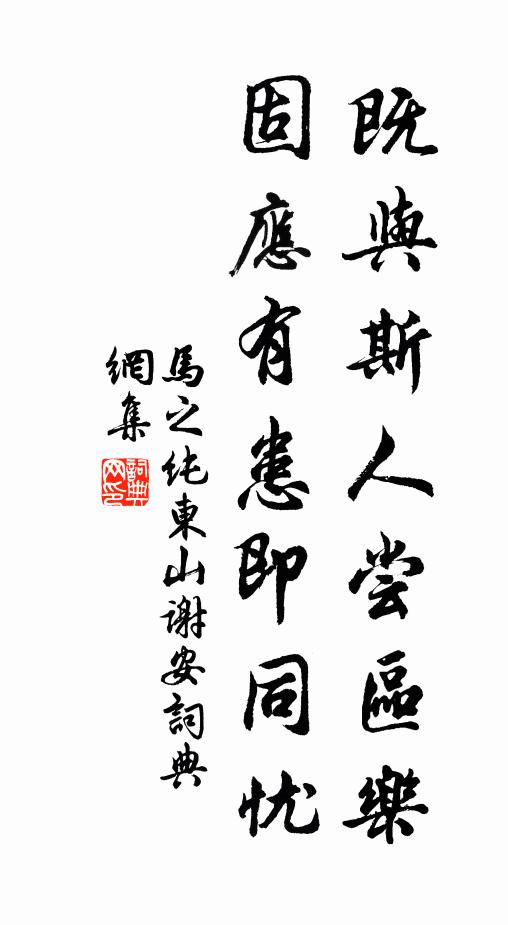 既與斯人尝區樂
固應有患即同忧
馬之纯東山谢安詞典
網集
詞典网印